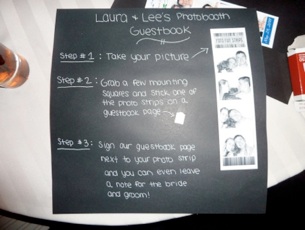 Laura & Lee's Photobooth
Guestbook
Step #1: Take your picture
Step #2: Grab a few mounting
squares and stick one of
the photo strips on a
guestbook page
Step #3: Sign our guestbook page
next to your photo strip
and you can even leave
a note for the bride
and groom!